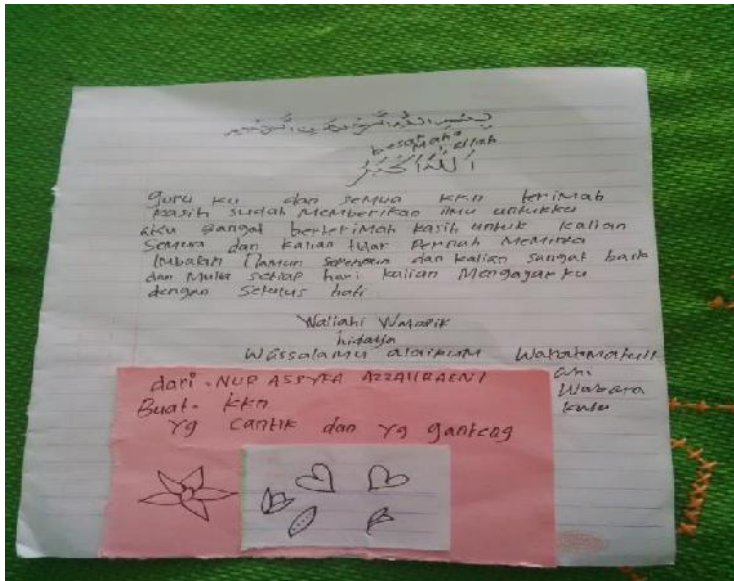 بِسْمِ اللهِ الرَّحْمَنِ الرَّحِيْمِ
besar
Allah
اَللهُ اَكْبَرُ
guru ku dan semua kkn terimah
kasih sudah memberikan ilmu untukku
aku sangat berterimah kasih untuk kalian
semua dan kalian tidak pernah meminta
imbalan namun dan kalian sangat baik
dan mulia setiap hari kalian mengajar ku
dengan setulus hati
Wallahi Wmopik
hidaya
Wassalamu alaikum Warahmatull
ahi
Wabara
katu
dari - NUR ASSYFA AZZAHRAENI
Buat - kkn
yg cantik dan yg ganteng